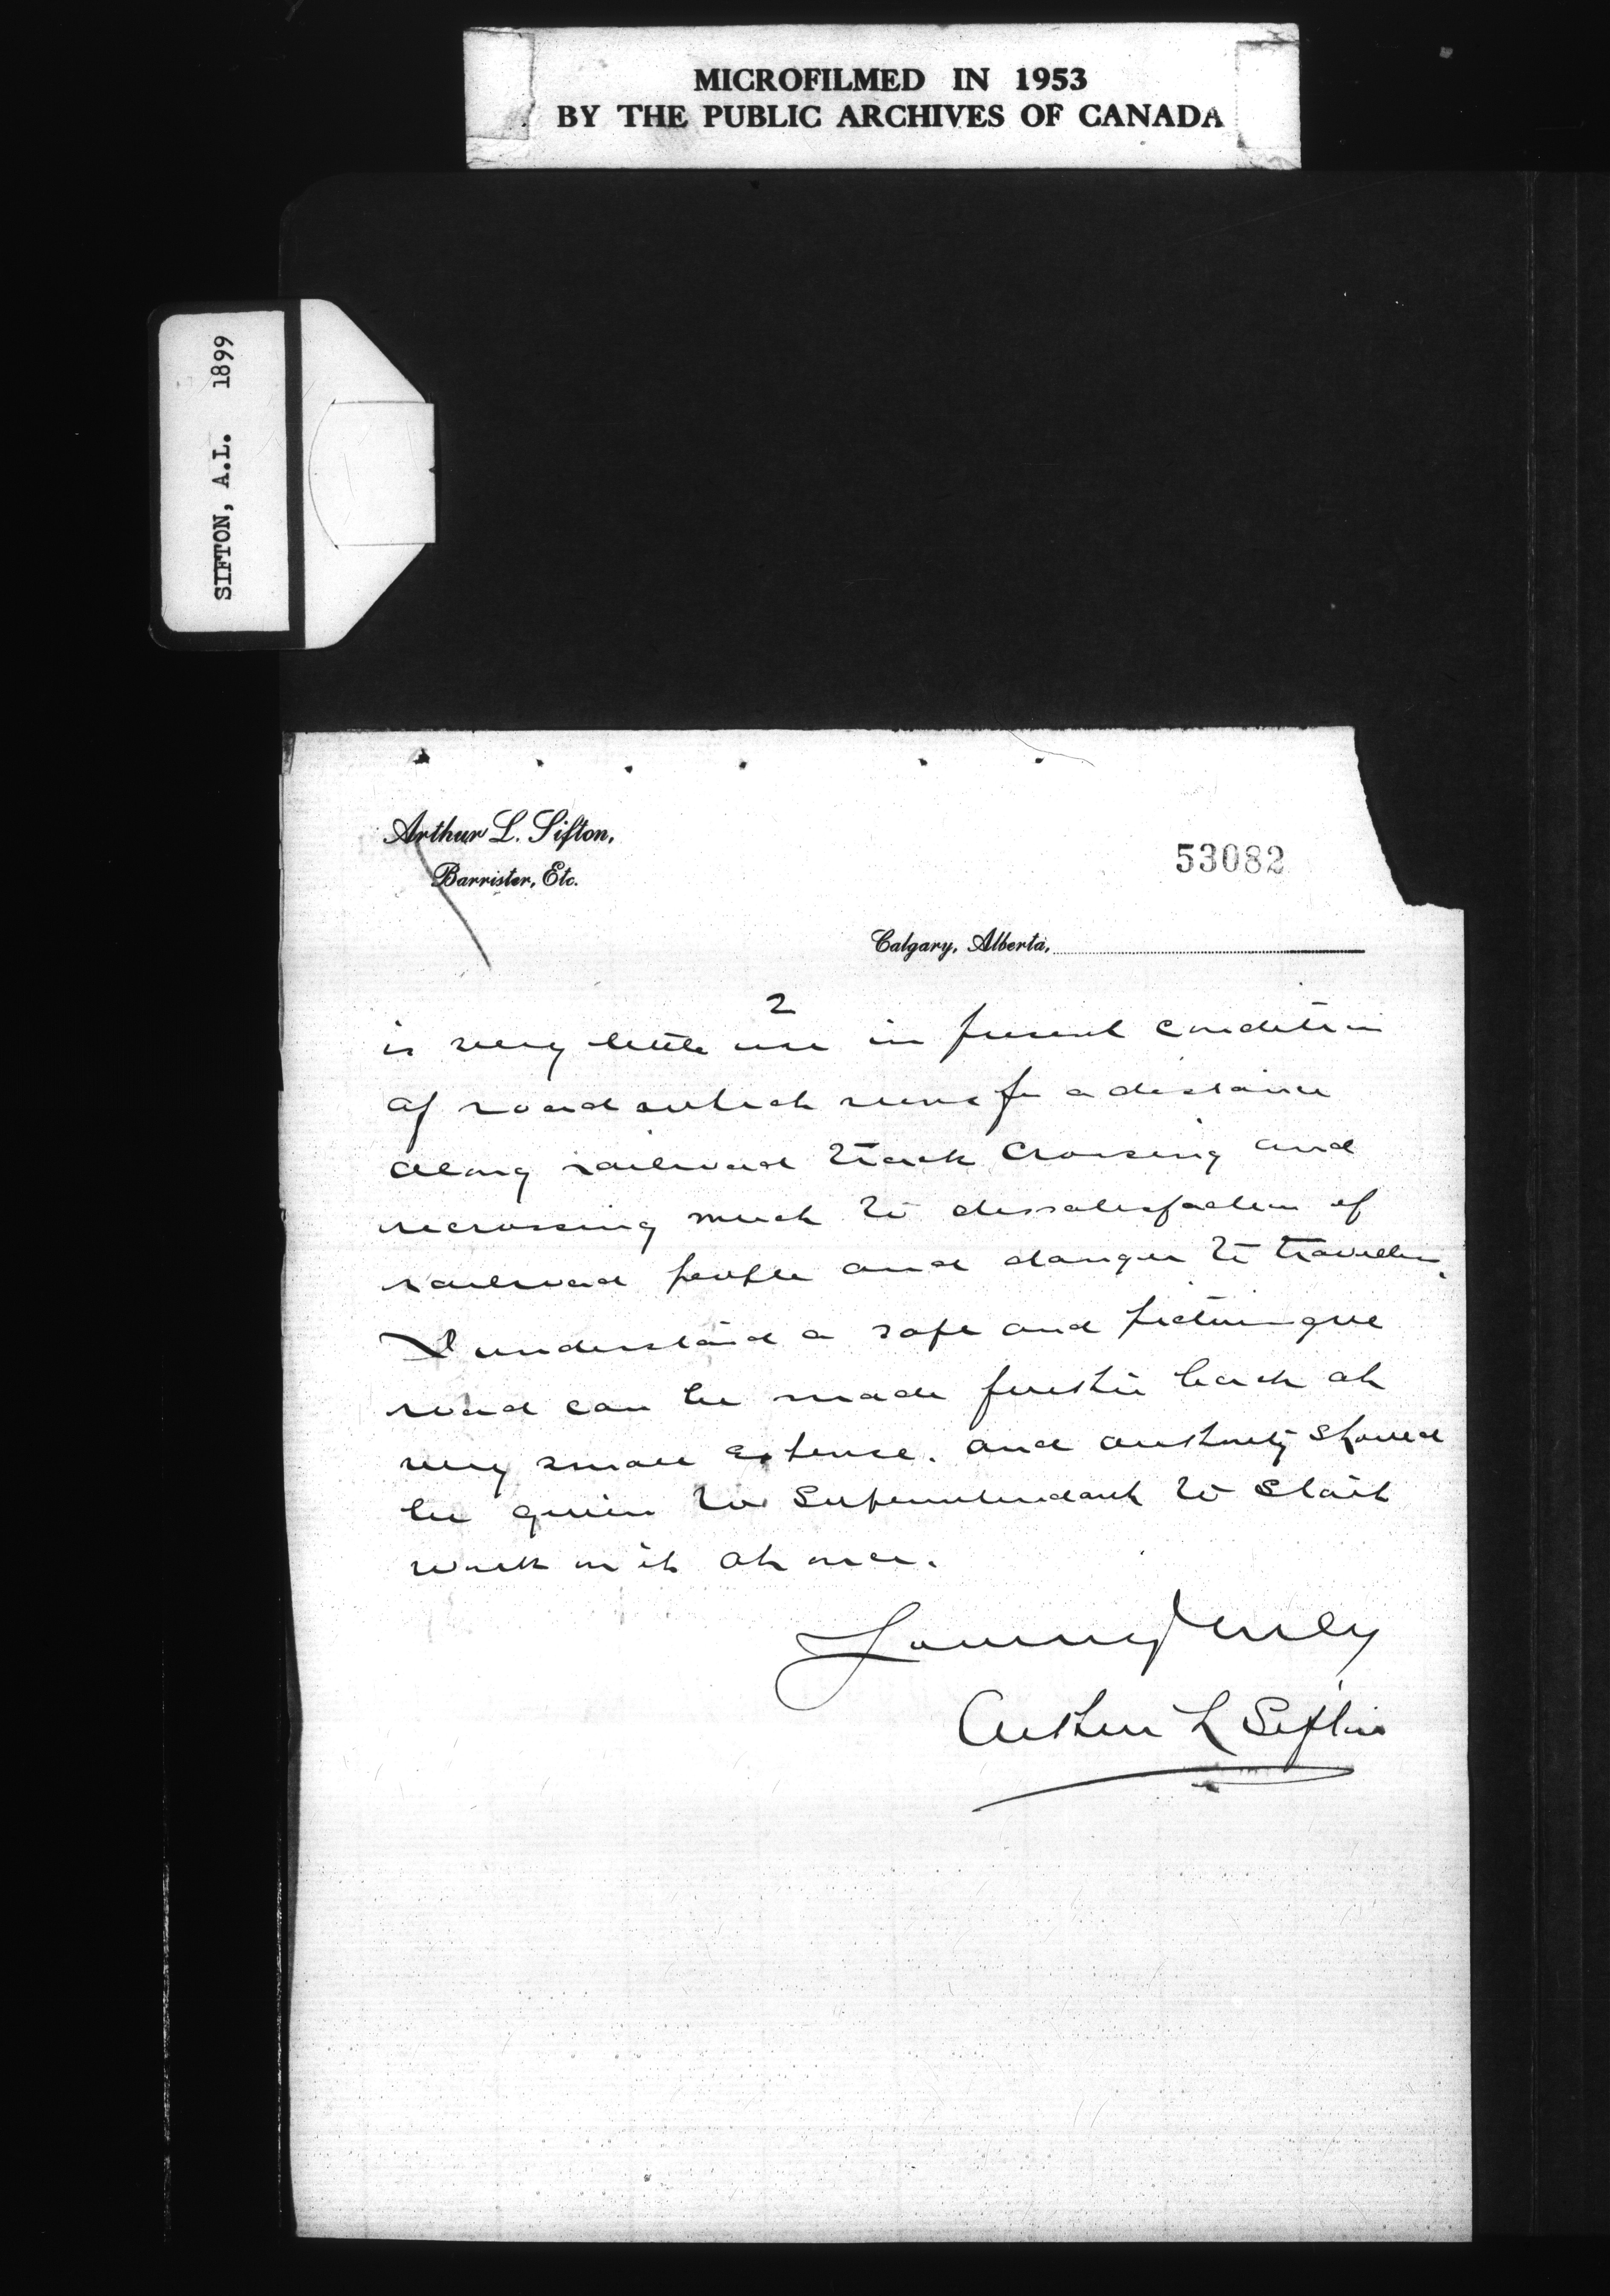 MICROFILMED IN 1953
BY THE PUBLIC ARCHIVES OF CANADA
SIFTON, A.L. 1899
Arthur L. Sifton,
Barrister, Etc.
53082
Calgary, Alberta,
2
is very little use in present condition
of road which runs for a distance
along railroad track crossing and
recrossing much to dissatisfaction of
railroad people and danger to travellers.
I understand a safe and picturesque
road can be made further back at
very small expense. and authority should
be given to Superintendent to start
work on it at once.
Yours truly
Arthur L Sifton